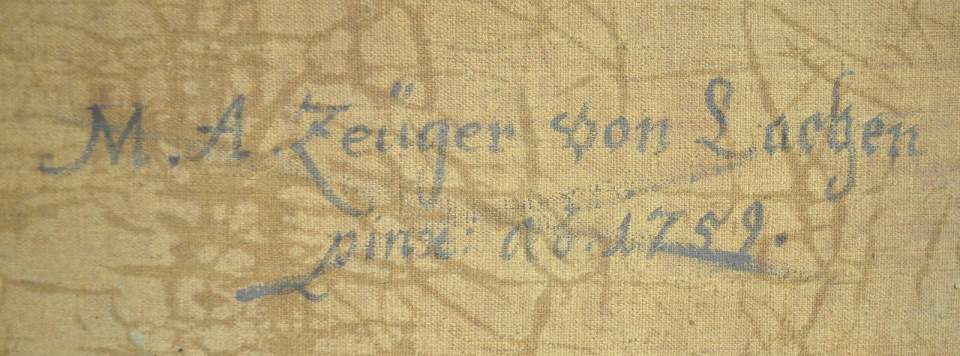 M. A. Zeüger von Lachen
pinx: aō. 1759.